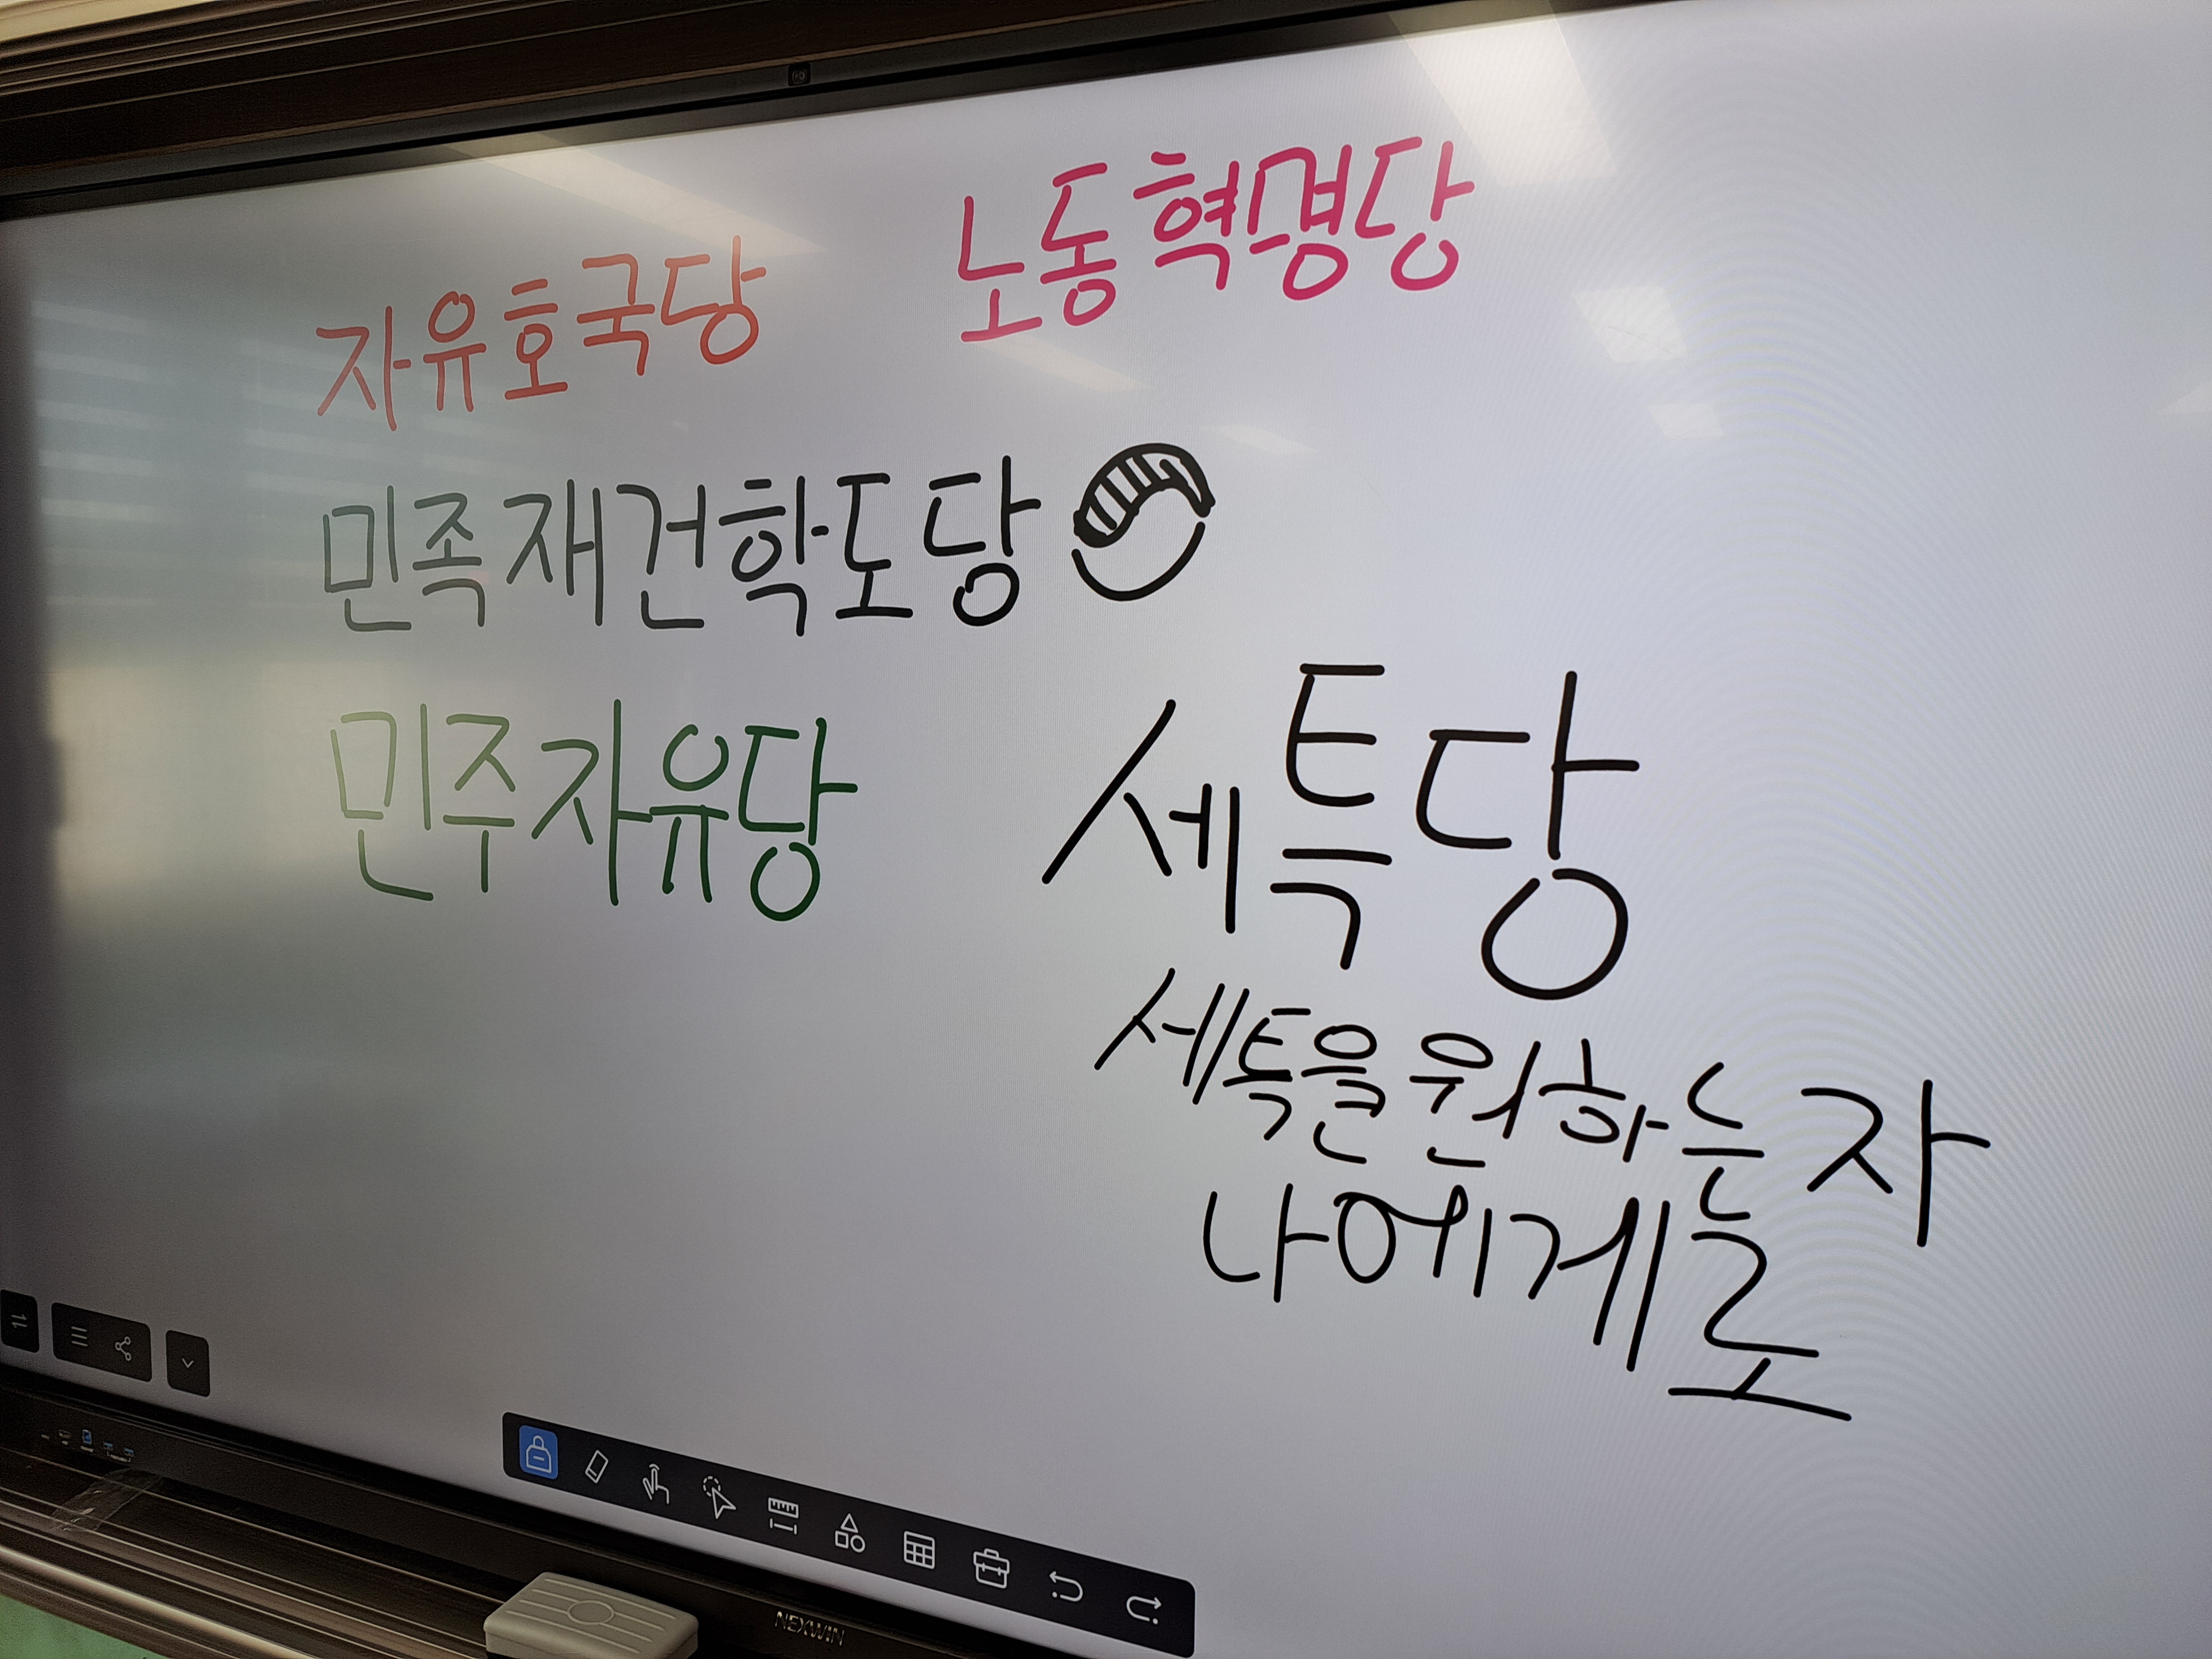 노동혁명당
자유호국당
민족재건학도당
민주자유당
세특당
세특을 원하는 자
나에게로
NEXWIN